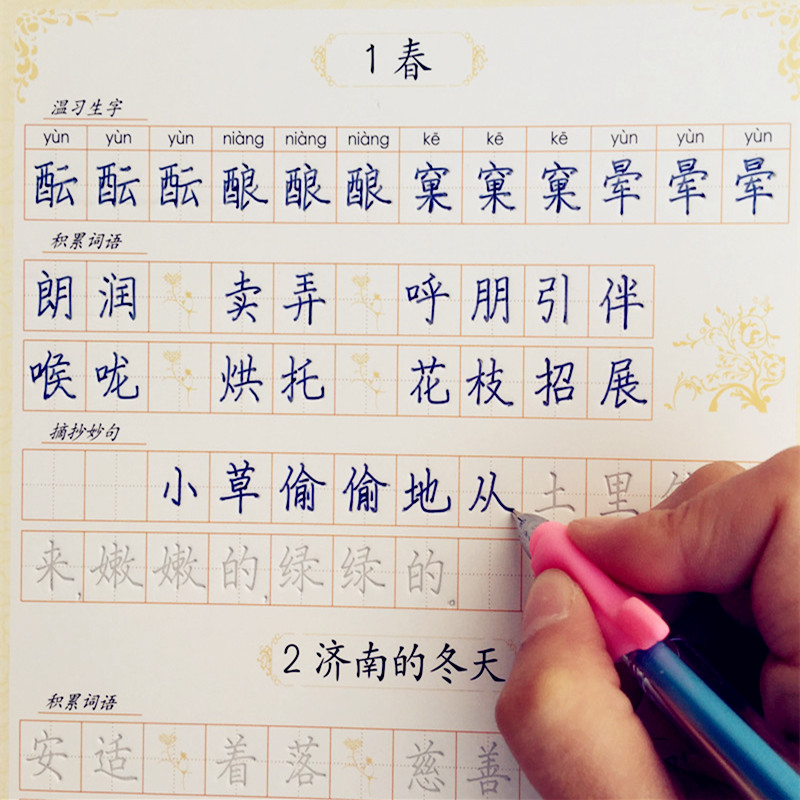 1 春
温习生字
yùn yùn yùn niàng niàng niàng kē kē kē yùn yùn yùn
酝 酝 酝 酿 酿 酿 窠 窠 窠 晕 晕 晕
积累词语
朗 润 卖 弄 呼 朋 引 伴
喉 咙 烘 托 花 枝 招 展
摘抄妙句
小 草 偷 偷 地 从 土 里
来, 嫩 嫩 的, 绿 绿 的。
2 济南的冬天
积累词语
安 适 着 落 慈 善